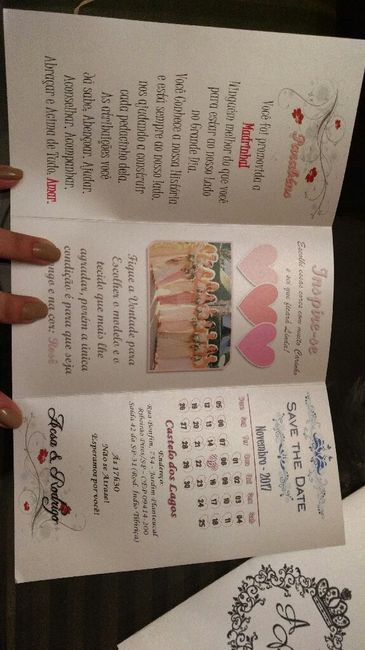 Parabéns
Você foi promovida a
Madrinha!
Ninguém melhor do que você
para estar ao nosso Lado
no Grande Dia.
Você Conhece a nossa História
e está sempre ao nosso lado,
nos ajudando a construir
cada pedacinho dela.
As atribuições você
Já sabe, Abençoar, Ajudar,
Aconselhar, Acompanhar,
Abraçar e Acima de Tudo, Amar.
Inspire-se
Escolhi essas cores com muito Carinho
e sei que ficará Linda!
Fique a Vontade para
Escolher o modelo e o
tecido que mais lhe
agradar, porém a única
condição é para que seja
longo e na cor: Rosê
SAVE THE DATE
Novembro - 2017
Dom Seg Ter Qua Qui Sex Sáb
01 02 03 04
05 06 07 08 09 10 11
12 13 14 15 16 17 18
19 20 21 22 23 24 25
26 27 28 29 30
Endereço:
Castelo dos Lagos
Rua Bonfim, 754 - Jardim
Ribeirão Pires/SP - CEP 09414-200
Saída 42 da SP-31 (Rod. Índio Tibiriça)
Às 17h30
Não se Atrase!
Esperamos por você!
& Rodrigo
A